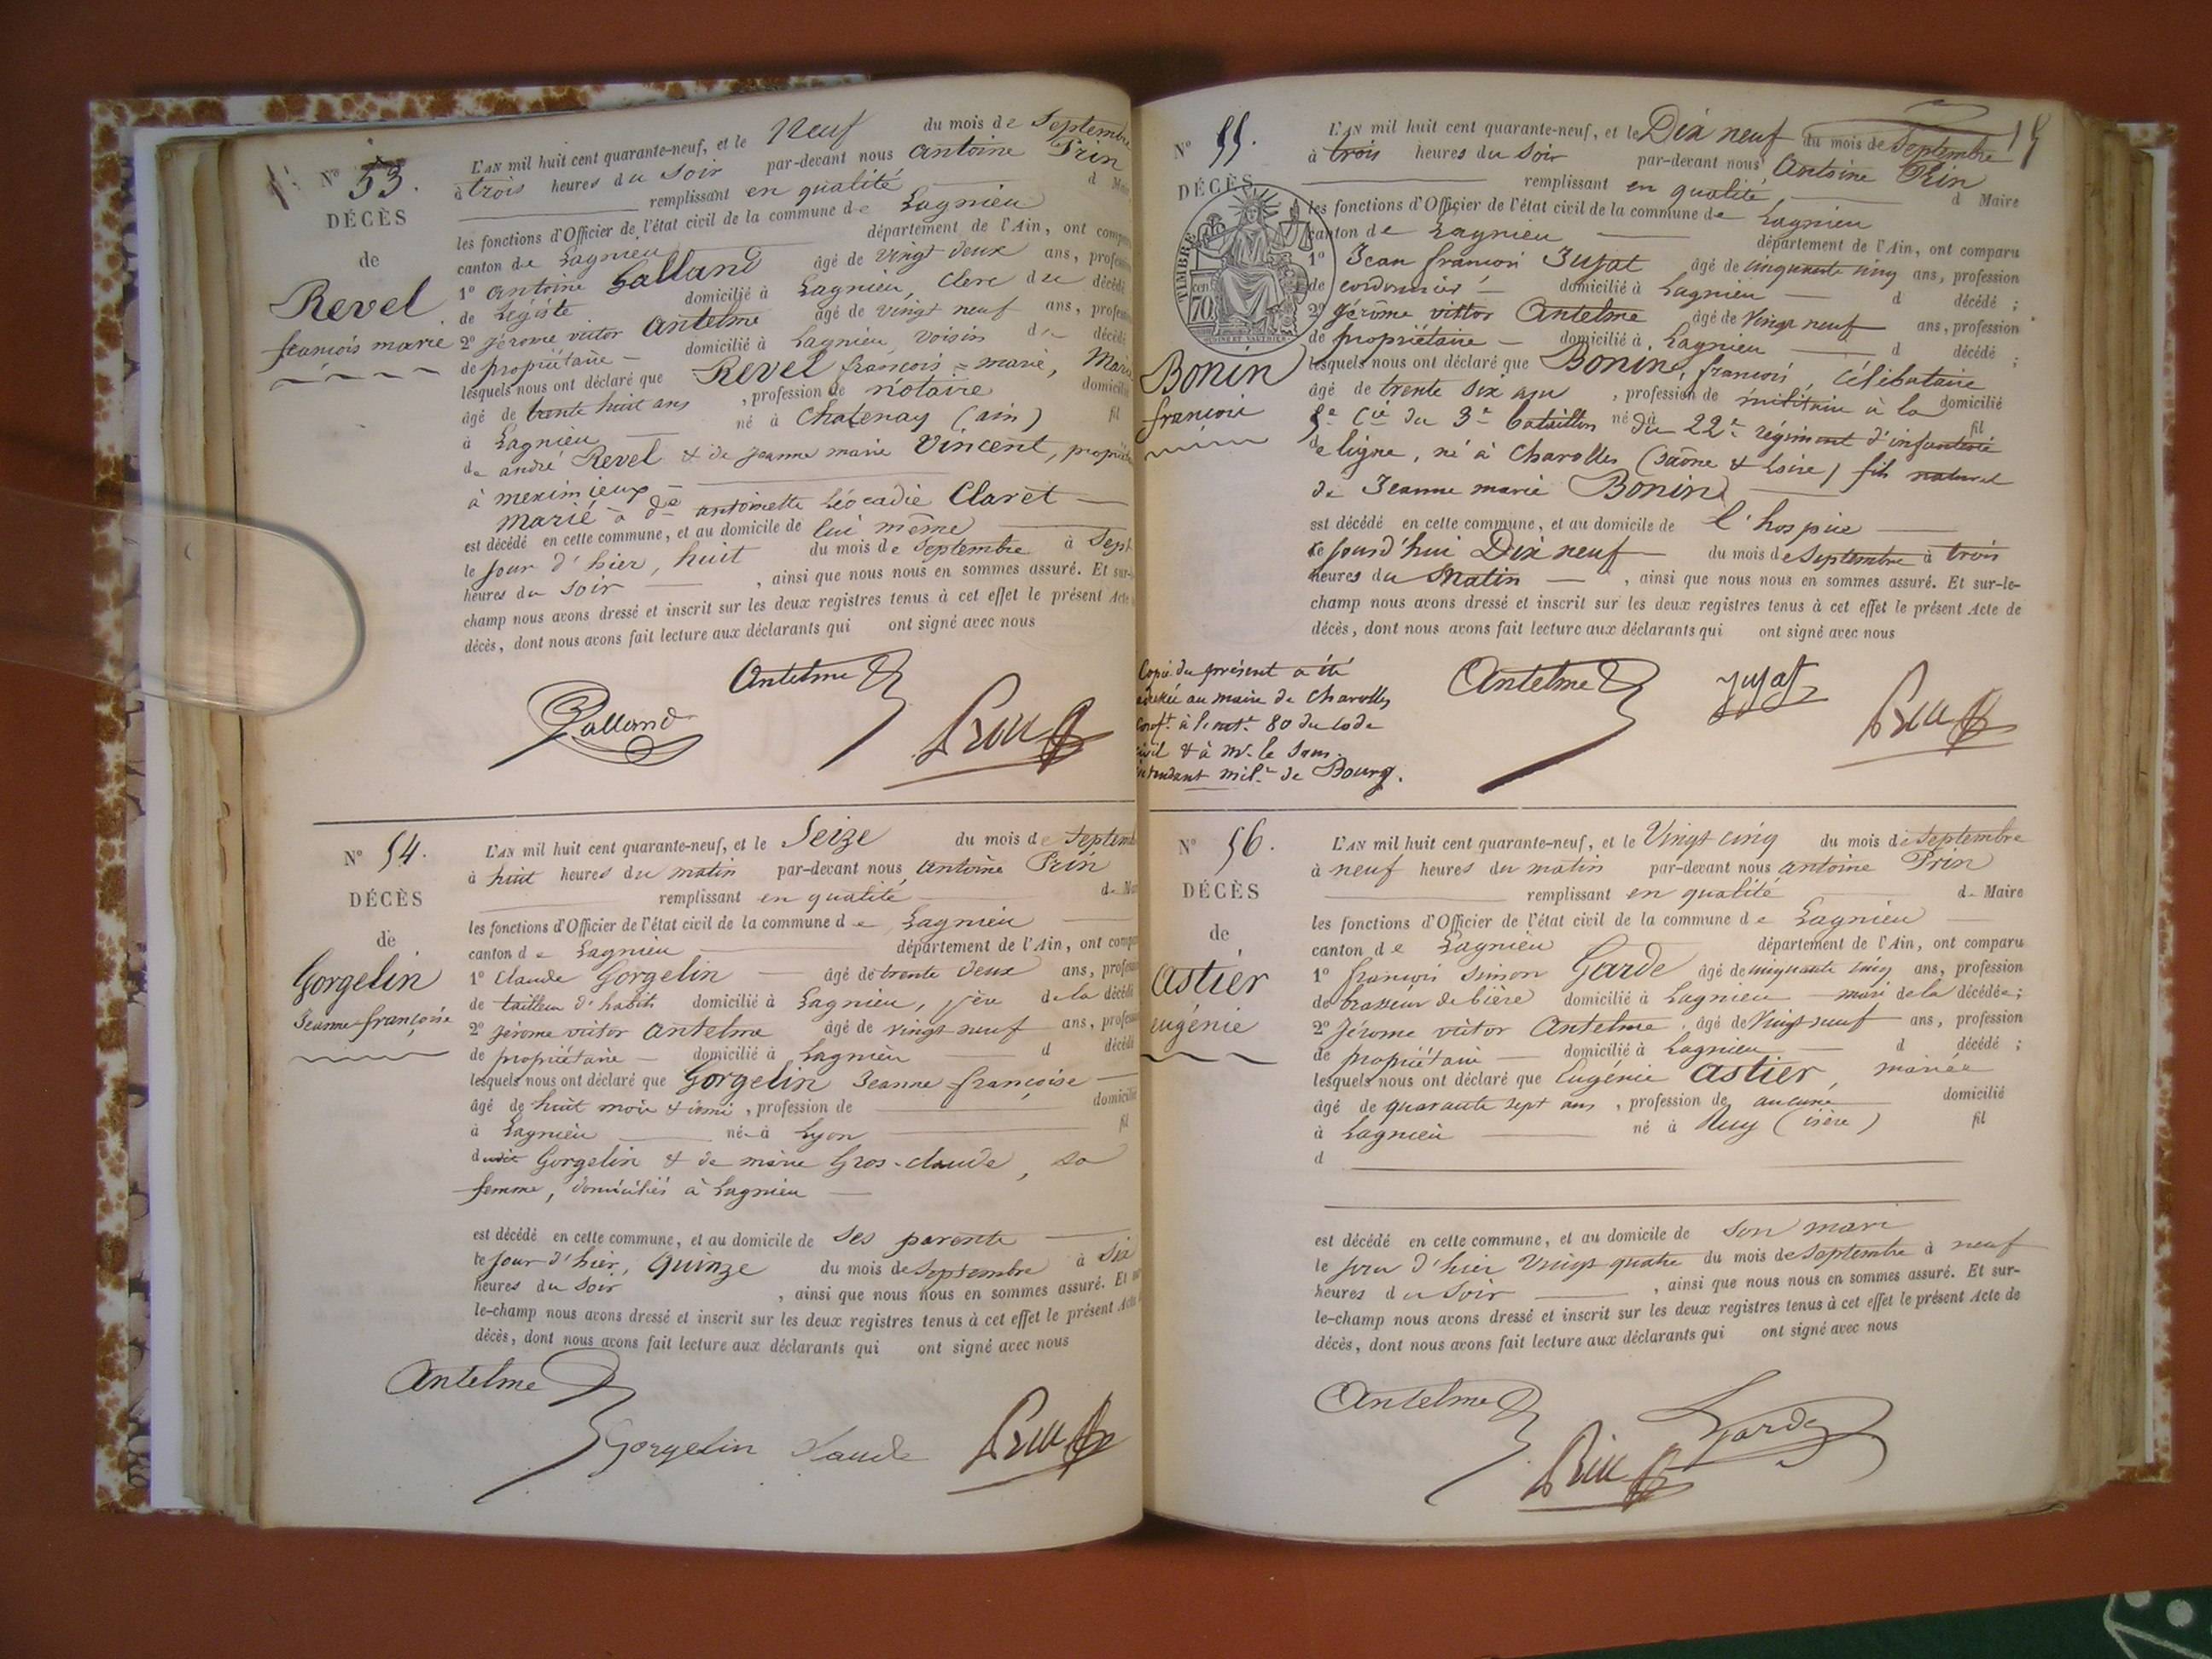 N° 53.
DÉCÈS
de
Revel
françois marie
L'AN mil huit cent quarante-neuf, et le Neuf du mois de Septembre
à trois heures du soir par-devant nous Antoine Prin
remplissant en qualité d Maire
les fonctions d'Officier de l'état civil de la commune de Lagnieu
canton de Lagnieu département de l'Ain, ont comparu
1° Antoine Galland âgé de vingt deux ans, profession
de Légiste domicilié à Lagnieu, Clerc du décédé
2° Jérome victor Antelme âgé de vingt neuf ans, profession
de propriétaire domicilié à Lagnieu, voisin du décédé
lesquels nous ont déclaré que Revel françois = marie, Marié
âgé de trente huit ans, profession de notaire domicilié
à Lagnieu né à Chatenay (ain) fil
de andré Revel & de jeanne marie Vincent,
à meximieux
marié à de antoinette Léocadie Claret
est décédé en cette commune, et au domicile de lui même
le jour d'hier, huit du mois de Septembre à Sept
heures du soir, ainsi que nous nous en sommes assuré. Et sur-le-
champ nous avons dressé et inscrit sur les deux registres tenus à cet effet le présent Acte
décès, dont nous avons fait lecture aux déclarants qui ont signé avec nous
Antelme
Galland Prin
N° 54.
DÉCÈS
de
Gorgelin
Jeanne-françoise
L'AN mil huit cent quarante-neuf, et le Seize du mois de Septembre
à huit heures du matin par-devant nous, antoine Prin
remplissant en qualité de Maire
les fonctions d'Officier de l'état civil de la commune de Lagnieu
canton de Lagnieu département de l'Ain, ont comparu
1° Claude Gorgelin âgé de trente deux ans, profession
de tailleur d'habits domicilié à Lagnieu, père de la décédé
2° Jérome victor Antelme âgé de vingt neuf ans, profession
de propriétaire domicilié à Lagnieu d décédé
lesquels nous ont déclaré que Gorgelin Jeanne françoise
âgé de huit mois & demi, profession de domicilié
à Lagnieu née à Lyon fil
dudit Gorgelin & de marie Gros-claude, sa
femme, domiciliés à Lagnieu
est décédé en cette commune, et au domicile de ses parents
le jour d'hier, quinze du mois de Septembre à Six
heures du soir, ainsi que nous nous en sommes assuré. Et sur-
le-champ nous avons dressé et inscrit sur les deux registres tenus à cet effet le présent Acte
décès, dont nous avons fait lecture aux déclarants qui ont signé avec nous
Antelme
Gorgelin Claude Prin
19
N° 55.
DÉCÈS
TIMBRE
70
Bonin
françois
L'AN mil huit cent quarante-neuf, et le Dix neuf du mois de Septembre
à trois heures du soir par-devant nous Antoine Prin
remplissant en qualité d Maire
les fonctions d'Officier de l'état civil de la commune de Lagnieu
canton de Lagnieu département de l'Ain, ont comparu
1° Jean françois Jujat âgé de cinquante cinq ans, profession
de cordonnier domicilié à Lagnieu d décédé ;
2° Jérôme victor Antelme âgé de vingt neuf ans, profession
de propriétaire domicilié à Lagnieu d décédé ;
lesquels nous ont déclaré que Bonin, françois, célibataire
âgé de trente six ans, profession de militaire à la domicilié
Cie du 3e bataillon né à du 22e régiment d'infanterie fil
de ligne, né à Charolles (Saône & Loire) fils naturel
de Jeanne marie Bonin
est décédé en cette commune, et au domicile de l'hospice
ce jourd'hui Dix neuf du mois de Septembre à trois
heures du Matin, ainsi que nous nous en sommes assuré. Et sur-le-
champ nous avons dressé et inscrit sur les deux registres tenus à cet effet le présent Acte de
décès, dont nous avons fait lecture aux déclarants qui ont signé avec nous
Copie du présent a été
adressée au maire de Charolles
conft. à l'art. 80 du Code
civil & à Mr. le Sous-
intendant milre de Bourg.
Antelme Jujat Prin
N° 56.
DÉCÈS
de
Astier
eugénie
L'AN mil huit cent quarante-neuf, et le Vingt cinq du mois de Septembre
à neuf heures du matin par-devant nous antoine Prin
remplissant en qualité de Maire
les fonctions d'Officier de l'état civil de la commune de Lagnieu
canton de Lagnieu département de l'Ain, ont comparu
1° françois simon Garde âgé de cinquante cinq ans, profession
de brasseur de bière domicilié à Lagnieu mari de la décédée;
2° Jérome victor Antelme, âgé de Vingt neuf ans, profession
de propriétaire domicilié à Lagnieu d décédé ;
lesquels nous ont déclaré que Eugénie Astier, mariée
âgé de quarante sept ans, profession de aucune domicilié
à Lagnieu né à Ruy (isère) fil
d
est décédé en cette commune, et au domicile de son mari
le jour d'hier Vingt quatre du mois de Septembre à neuf
heures du Soir, ainsi que nous nous en sommes assuré. Et sur-
le-champ nous avons dressé et inscrit sur les deux registres tenus à cet effet le présent Acte de
décès, dont nous avons fait lecture aux déclarants qui ont signé avec nous
Antelme Garde
Prin